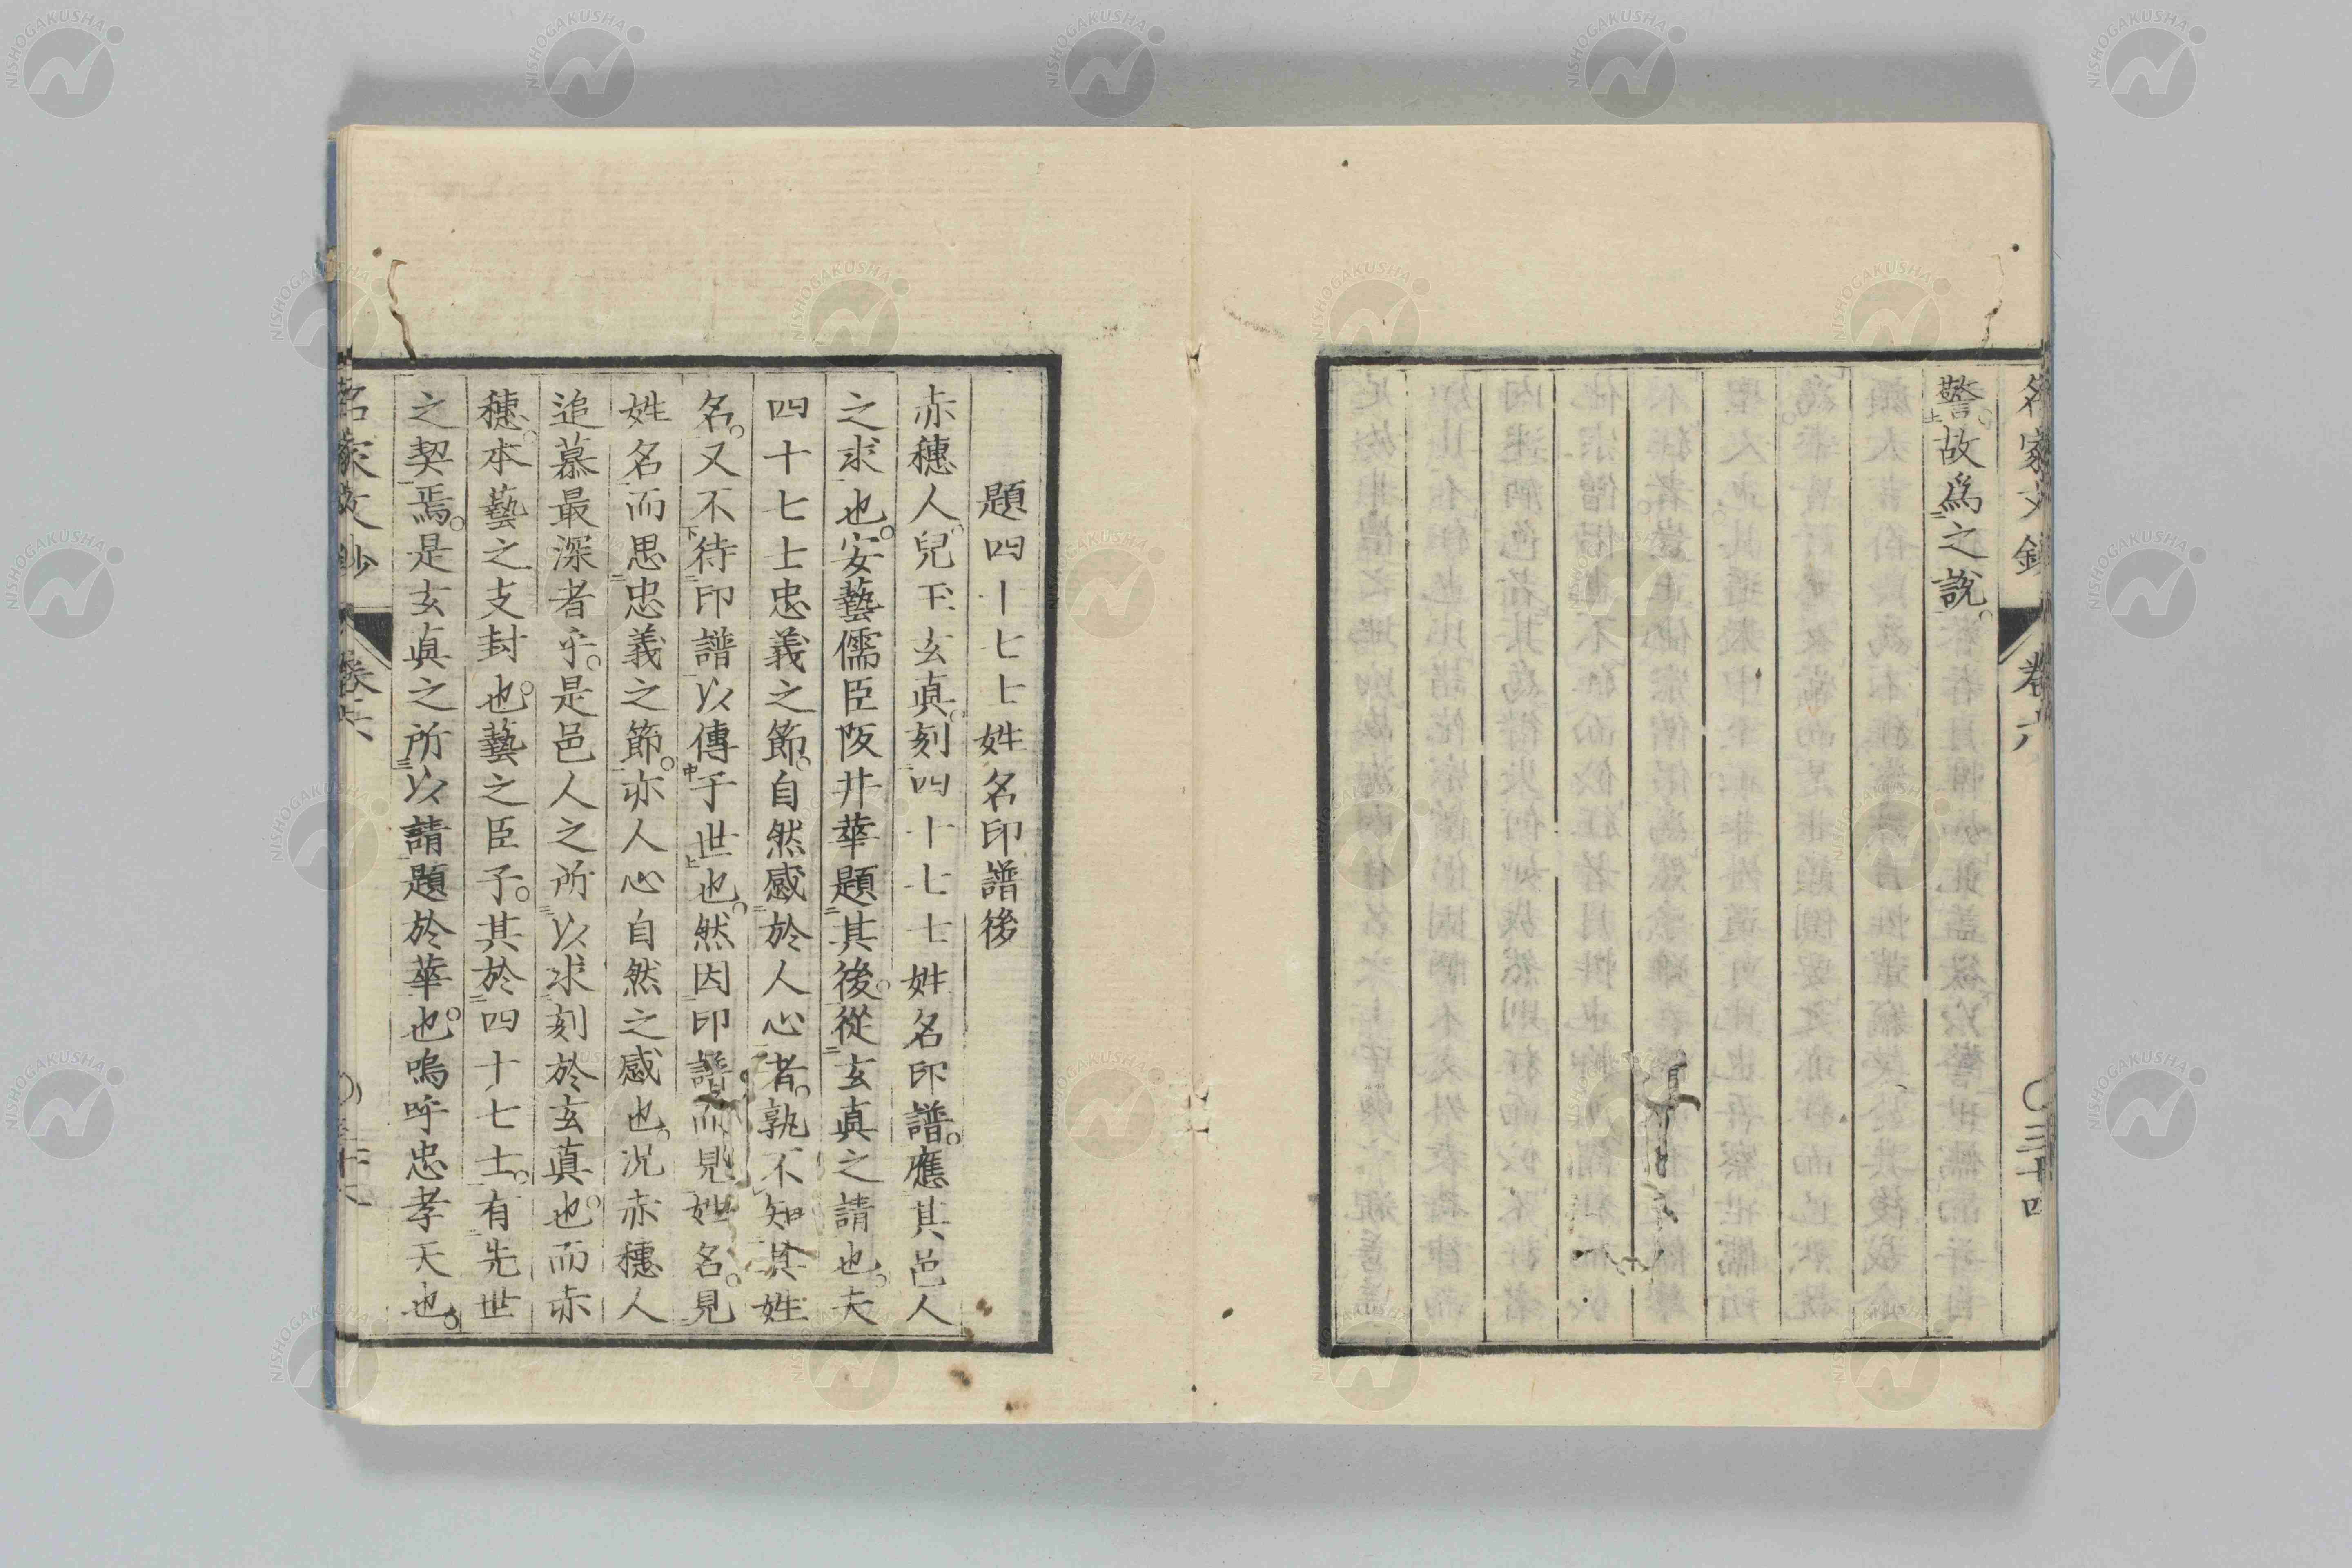 名家文鈔 卷六 〇三十四
警故爲之說。
題四十七士姓名印譜後
赤穗人兒玉玄眞。刻四十七士姓名印譜。應其邑人
之求也。安藝儒臣阪井華題其後。從玄眞之請也。夫
四十七士忠義之節。自然感於人心者。孰不知其姓
名。又不待印譜以傳于世也。然因印譜而見姓名。見
姓名而思忠義之節。亦人心自然之感也。况赤穗人
追慕最深者乎。是邑人之所以求刻於玄眞也。而赤
穗。本藝之支封也。藝之臣子。其於四十七士。有先世
之契焉。是玄眞之所以請題於華也。嗚呼忠孝天也。
名家文鈔 卷六
NISHOGAKUSHA